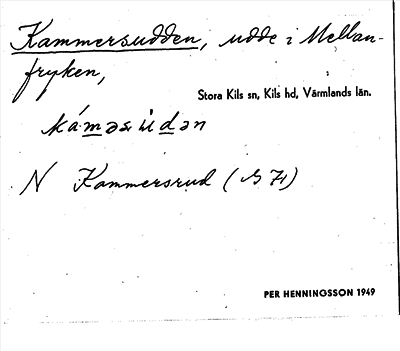 Kammersudden, udde i Mellan-
fryken,
Stora Kils sn, Kils hd, Värmlands län.
N Kammersrud (
PER HENNINGSSON 1949